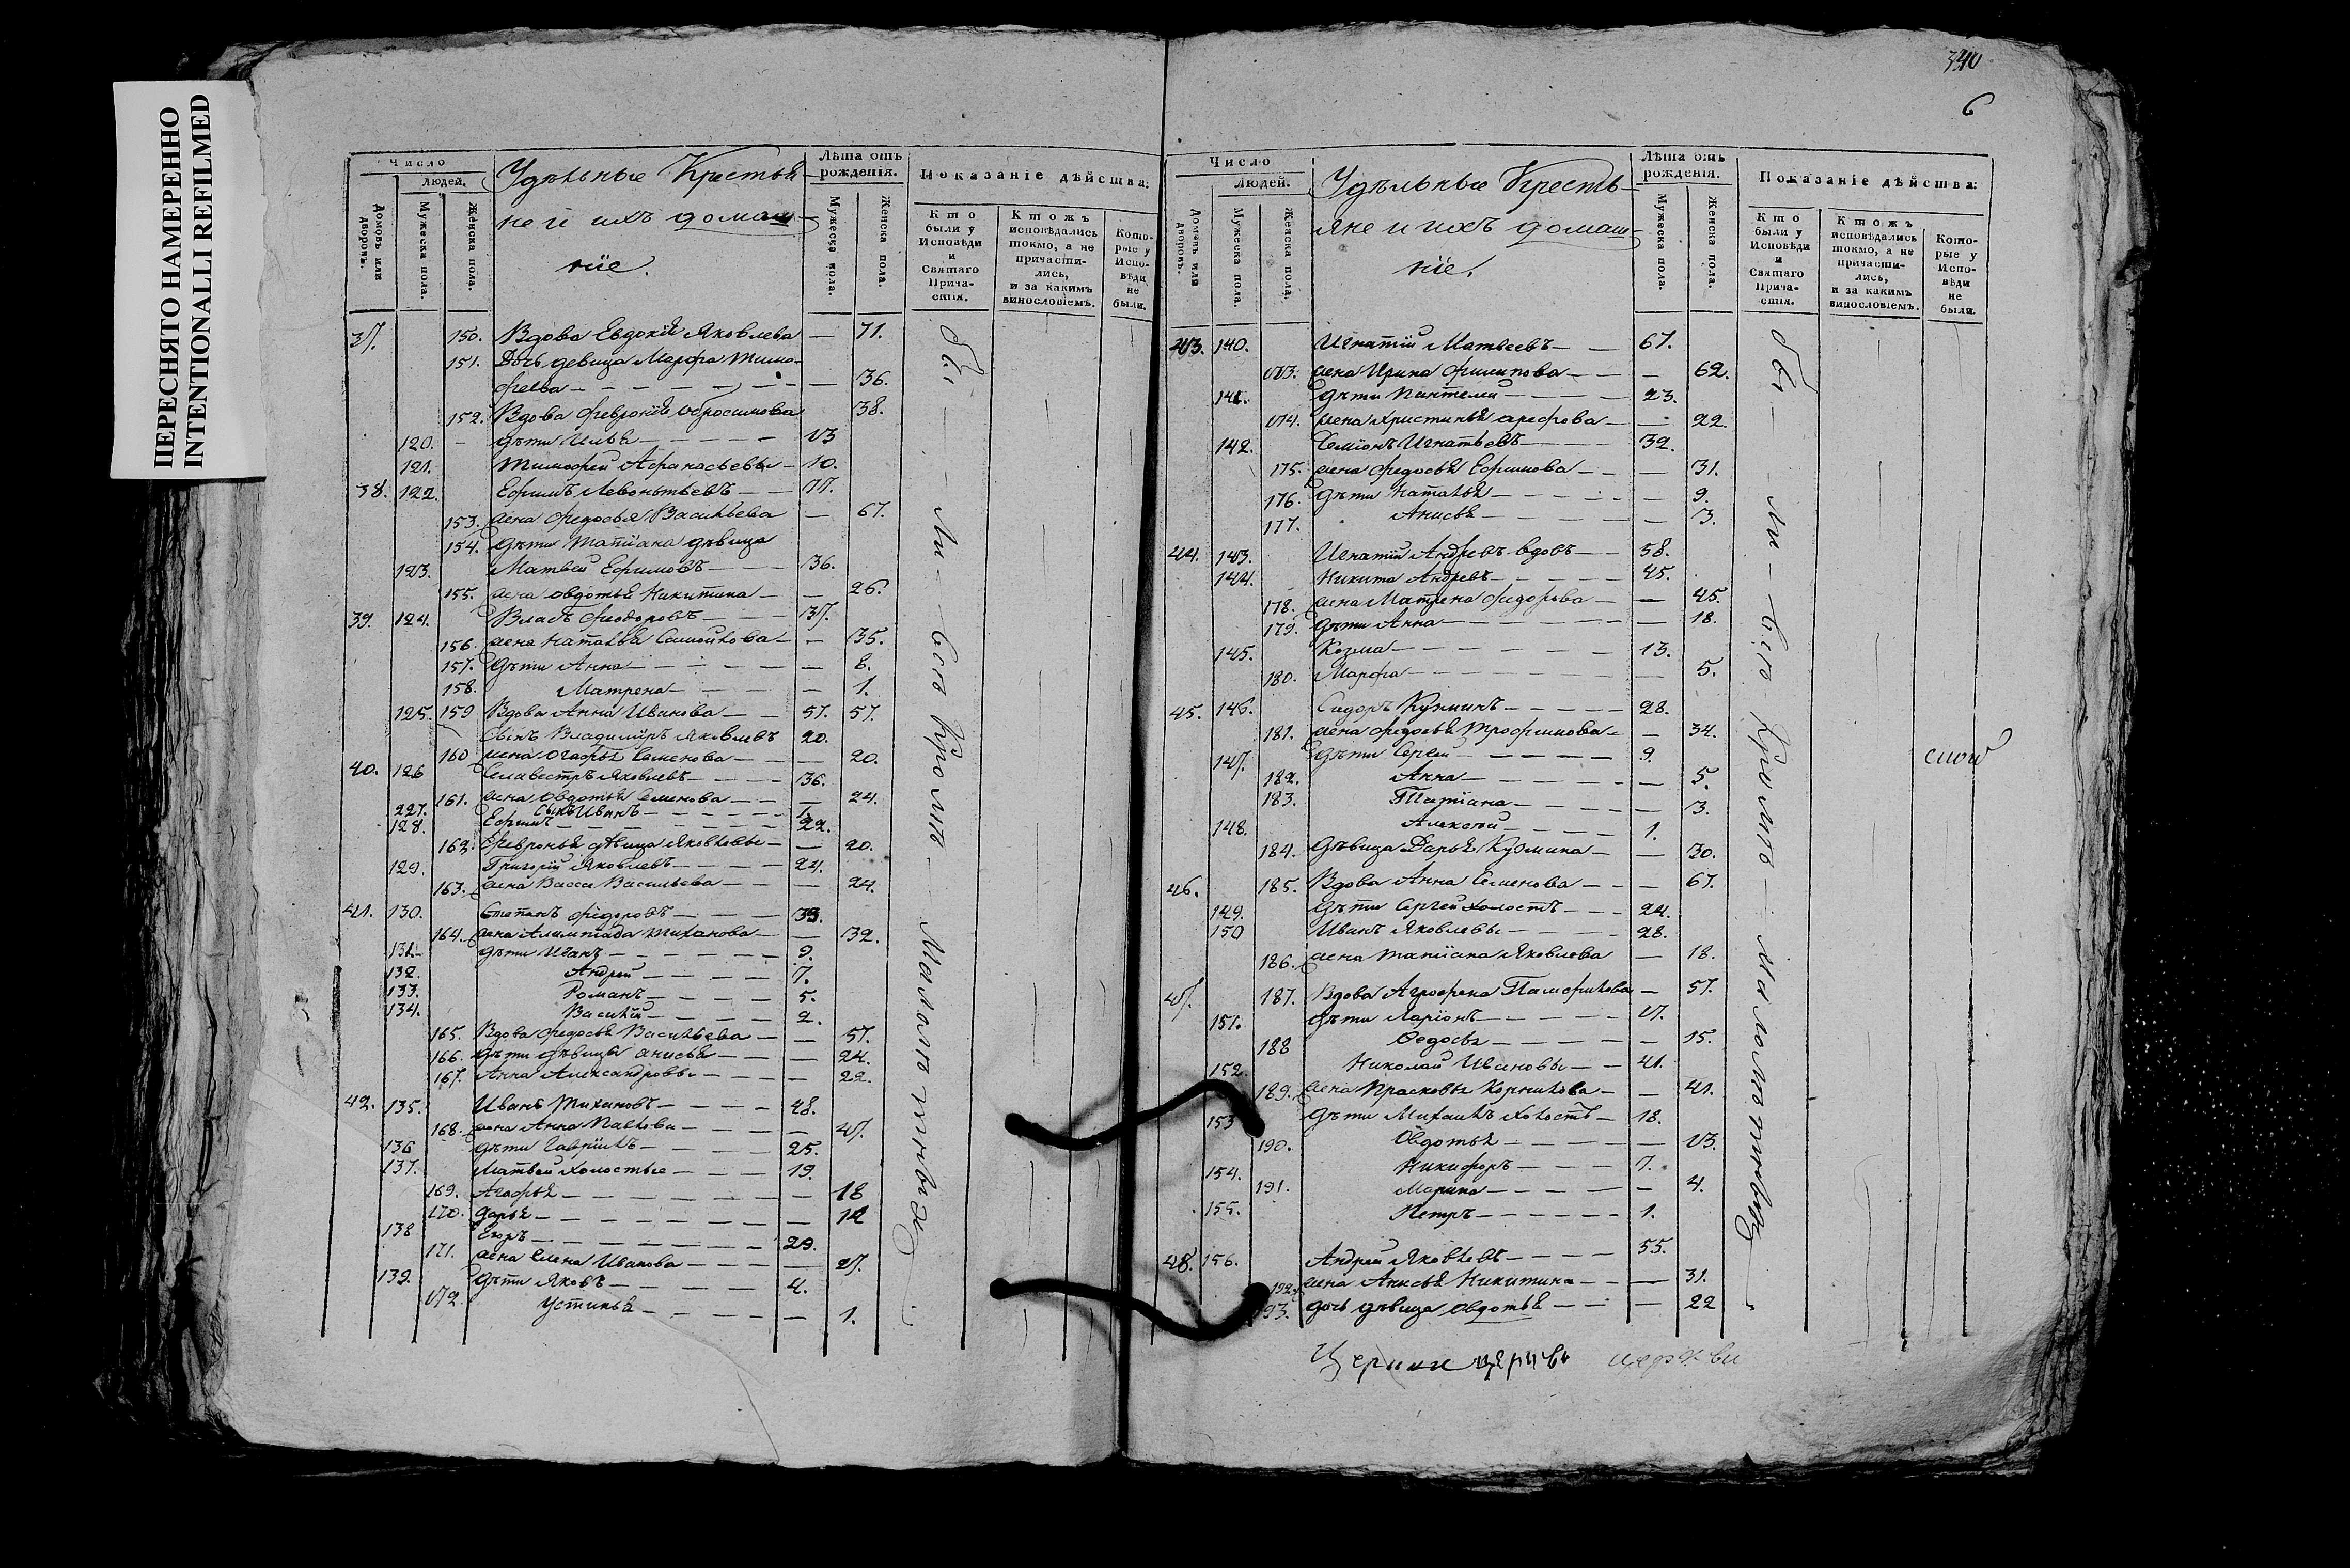 ПЕРЕСНЯТО НАМЕРЕННО
INTENTIONALLI REFILMED
Число
людей.
Домовъ или дворовъ.
Мужеска пола.
Женска пола.
Удѣльные Крестья-
не и ихъ домаш-
ніе.
Лѣта отъ рожденія.
Мужеска пола.
Женска пола.
Показаніе дѣйства:
Кто были у Исповѣди и Святаго Прича-стія.
Ктожъ исповѣдались токмо, а не причасти-лись, и за какимъ винословіемъ.
Кото-рые у Испо-вѣди не были.
37. 150. Вдова Евдокія Яковлева — 71.
151. Дочь девица Марфа Тимо-
феева — 36.
152. Вдова Февронія 38.
120. дѣти Илья — 13
121. Тимофей Афанасьевы — 10.
38. 122. Ефимъ Левонтьевъ — 77.
153. жена Федосья Васильева — 67.
154. дѣти Татіана дѣвица
123. Матвей Ефимовъ — 36.
155. жена Овдотья Никитина — 26.
39 124. Власъ Феодоровъ — 37.
156. жена Наталья Самойлова — 35.
157. дѣти Анна — 6.
158. Матрена — 1.
125. 159 Вдова Анна Иванова — 57. 57.
сынъ Владимиръ Яковлевъ 20.
160 жена Огафья Семенова — 20.
40. 126 Селивестръ Яковлевъ — 36.
161. жена Овдотья Семенова — 24.
227. сынъ Иванъ — 1.
128. Ефимъ — 22.
162. Февронья дѣвица Яковлевы — 20.
129. Григорій Яковлевъ — 24.
163. жена Васса Васильева — 24.
41. 130. Степанъ Федоровъ — 33.
164. жена Алимпіада Тиханова — 32.
131. дѣти Иванъ — 9.
132. Андрей — 7.
133. Романъ — 5.
134. Василій — 2.
165. Вдова Федосья Васильева — 57.
166. дѣти дѣвицы Анисья — 24.
167. Анна Александровы — 22.
42. 135. Иванъ Тихановъ — 48.
168. жена Анна Павлова — 47.
136 дѣти Гаврилъ — 25.
137. Матвей холостые — 19.
169. Агафья — 18
170. Дарья — 12
138 Егоръ — 29.
171. жена Елена Иванова — 27.
139. дѣти Яковъ — 4.
172. Устинья — 1.
бы — ли — всѣ кромѣ малолѣтныхъ
340
6
Число
Людей.
Домовъ или дворовъ.
Мужеска пола.
Женска пола.
Удѣльные Кресть-
яне и ихъ домаш-
ніе.
Лѣта отъ рожденія.
Мужеска пола.
Женска пола.
Показаніе дѣйства:
Кто были у Исповѣди и Святаго Прича-стія.
Ктожъ исповѣдались токмо, а не причасти-лись, и за какимъ винословіемъ.
Кото-рые у Испо-вѣди не были.
43. 140. Игнатій Матвеевъ — 67.
173. жена Ирина Филипова — 62.
141. дѣти Пантелей — 23.
174. жена Христинья Арефова — 22.
142. Семіонъ Игнатьевъ — 32.
175. жена Федосья Ефимова — 31.
176. дѣти Наталья — 9.
177. Анисья — 3.
44. 143. Игнатій Андревъ вдовъ — 58.
144. Никита Андревъ — 45.
178. жена Матрена Федорова — 45.
179. дѣти Анна — 18.
145. Козма — 13.
180. Марфа — 5.
45. 146. Сидоръ Кузминъ — 28.
181. жена Федосья Трофимова — 34.
147. дѣти Сергей — 9.
182. Анна — 5.
183. Татіана — 3.
148. Алексѣй — 1.
184. дѣвица Дарья Кузмина — 30.
46. 185. Вдова Анна Семенова — 67.
149. дѣти Сергей холостъ — 24.
150 Иванъ Яковлевы — 28.
186. жена Татіана Яковлева — 18.
47. 187. Вдова Агрофена Памфилова — 57.
151. дѣти Ларіонъ — 17.
188 Федосья — 15.
152. Николай Ивановы — 41.
189. жена Прасковья Корнилова — 41.
153 дѣти Михаилъ холостъ — 18.
190. Овдотья — 13.
154. Никифоръ — 7.
191. Марина — 4.
155. Петръ — 1.
48. 156. Андрей Яковлевъ — 55.
192. жена Анисья Никитина — 31.
93. дочь дѣвица Овдотья — 22
бы — ли — всѣ кромѣ — малолѣтныхъ
церкви